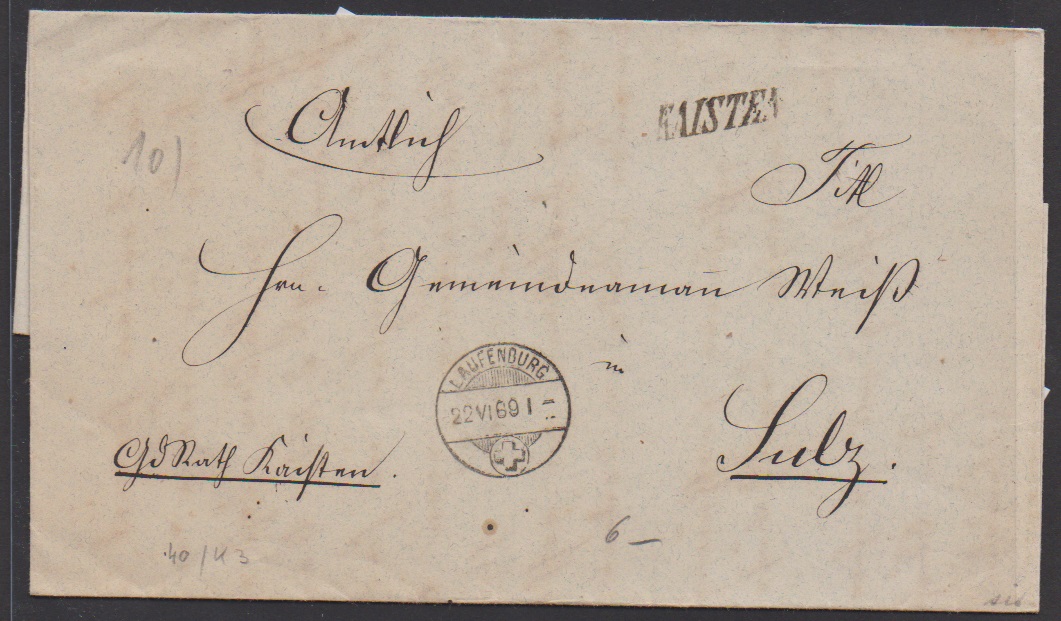 Amtlich
KAISTEN
10)
Titl
Hrn. Gemeindeamañ Weiß
in
LAUFENBURG
22 VI 89 I
GdRath Kaisten.
Sulz.
6 –
40/K3